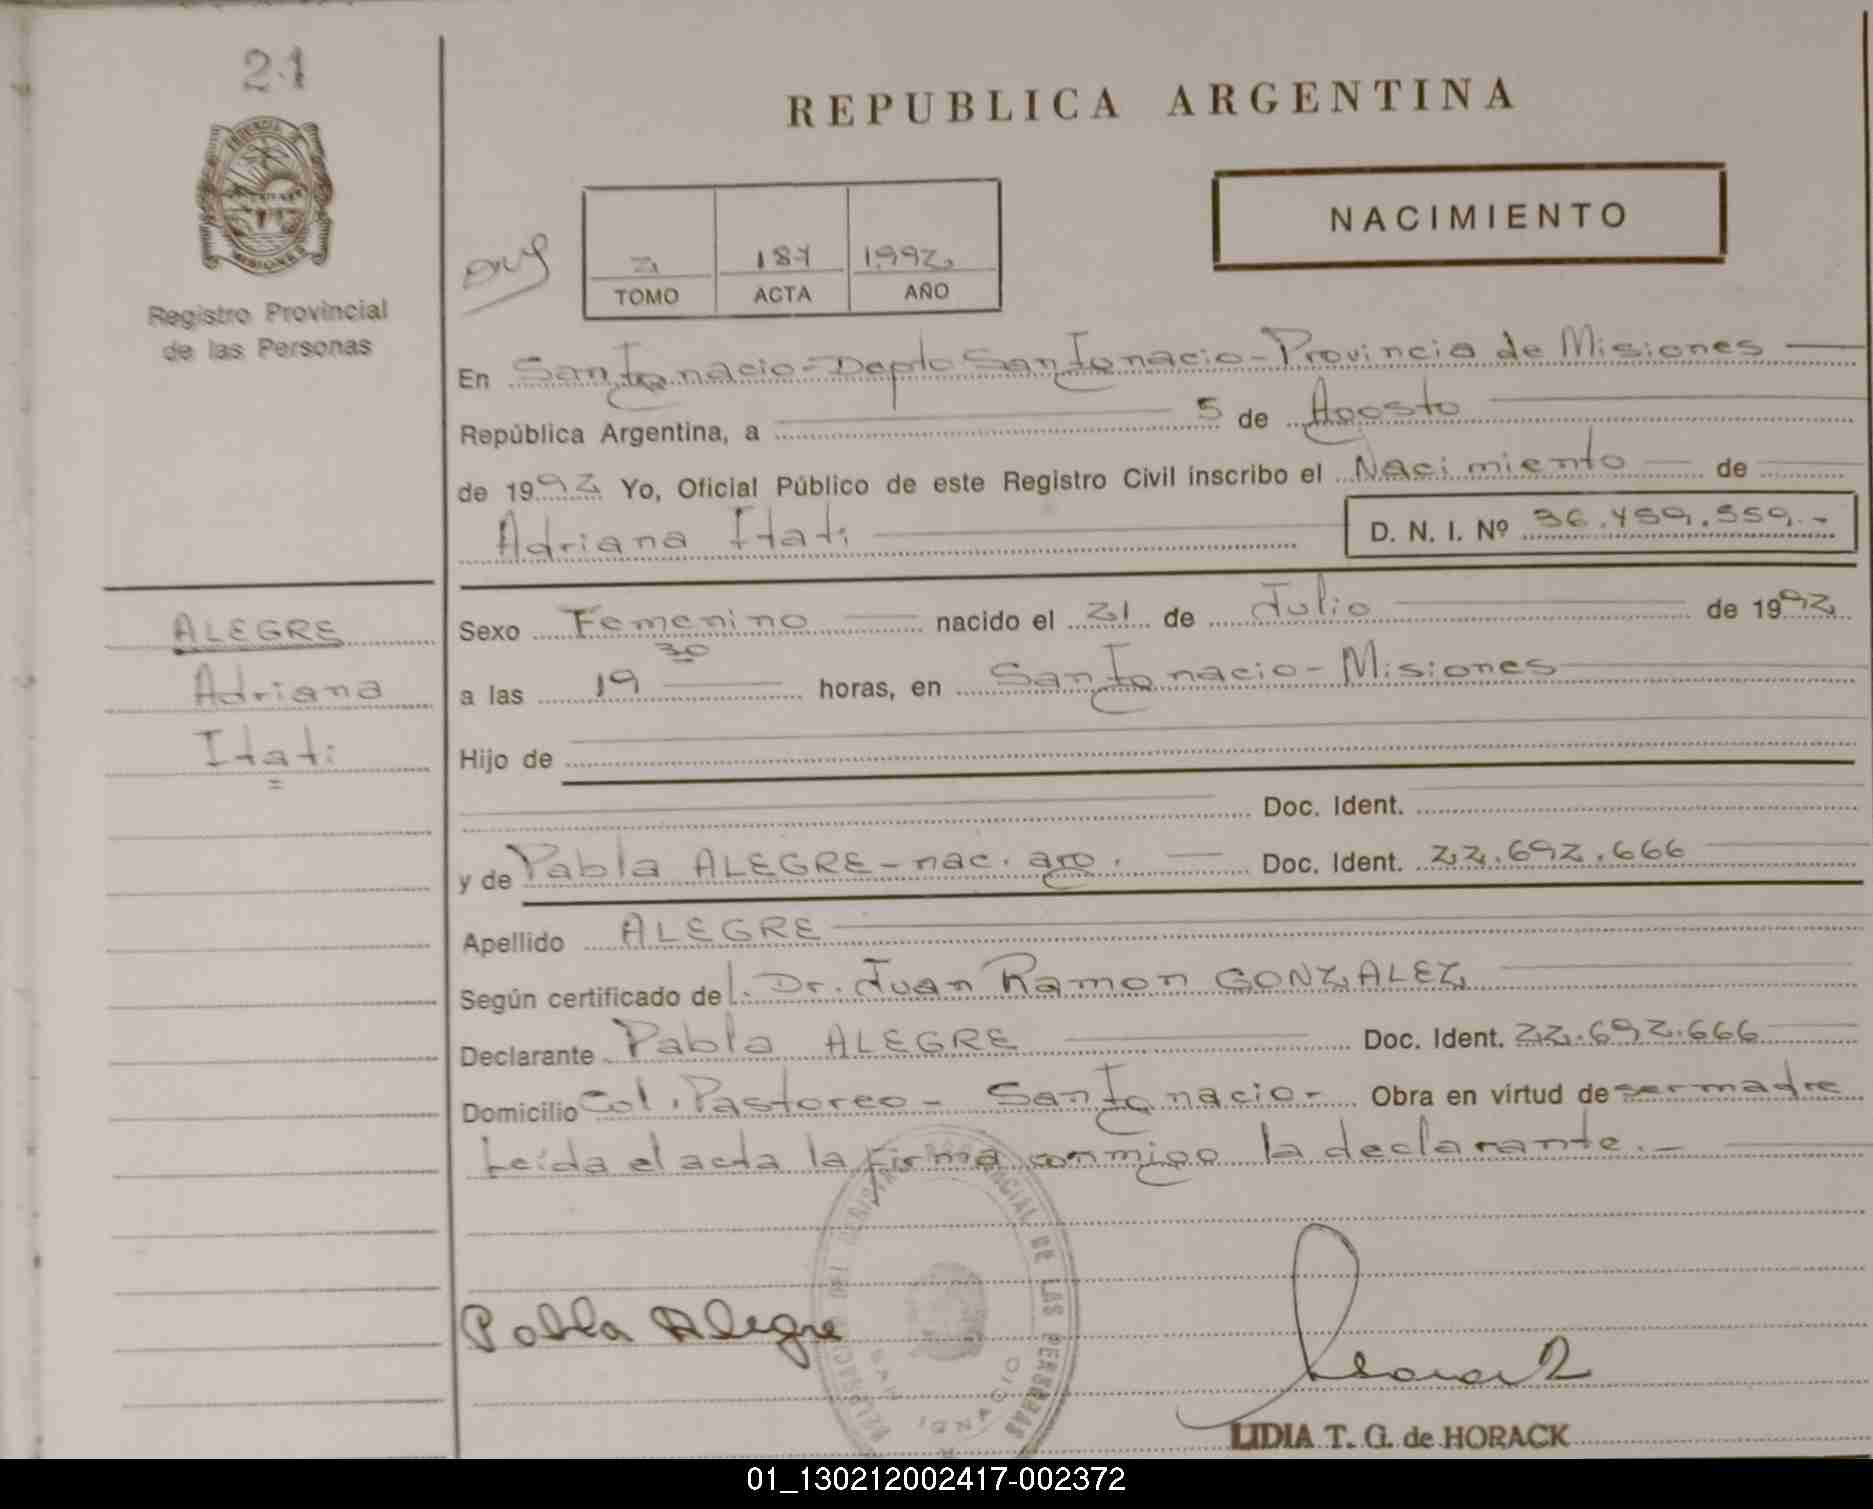 21
REPUBLICA ARGENTINA
NACIMIENTO
2 187 1992
TOMO ACTA AÑO
Registro Provincial
de las Personas
En San Ignacio - Depto San Ignacio - Provincia de Misiones
República Argentina, a 5 de Agosto
de 1992 Yo, Oficial Público de este Registro Civil inscribo el Nacimiento de
Adriana Itati D. N. I. Nº 36.459.559.-
ALEGRE
Adriana
Itati
Sexo Femenino nacido el 21 de Julio de 1992
a las 19 30 horas, en San Ignacio - Misiones
Hijo de
Doc. Ident.
y de Pabla ALEGRE - nac. arg. Doc. Ident. 22.692.666
Apellido ALEGRE
Según certificado del. Dr. Juan Ramon GONZALEZ
Declarante Pabla ALEGRE Doc. Ident. 22.692.666
Domicilio Col. Pastoreo - San Ignacio - Obra en virtud de ser madre
Leída el acta la firma conmigo la declarante.-
Pabla Alegre
LIDIA T. G. de HORACK
01_130212002417-002372